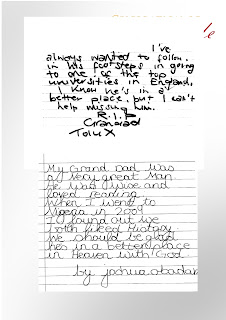 I've
always wanted to follow
in his footsteps in going
to one of the top
universities in England,
I know he's in a
better place, but I can't
help missing him.
R.I.P
Grandad
Tolu X
My Grand Dad was
a very great Man
He was wise and
loved reading
When I went to
Nigeria in 2009
I found out we
both liked History
We should be glad
he's in a better place
in Heaven with God.
by Joshua